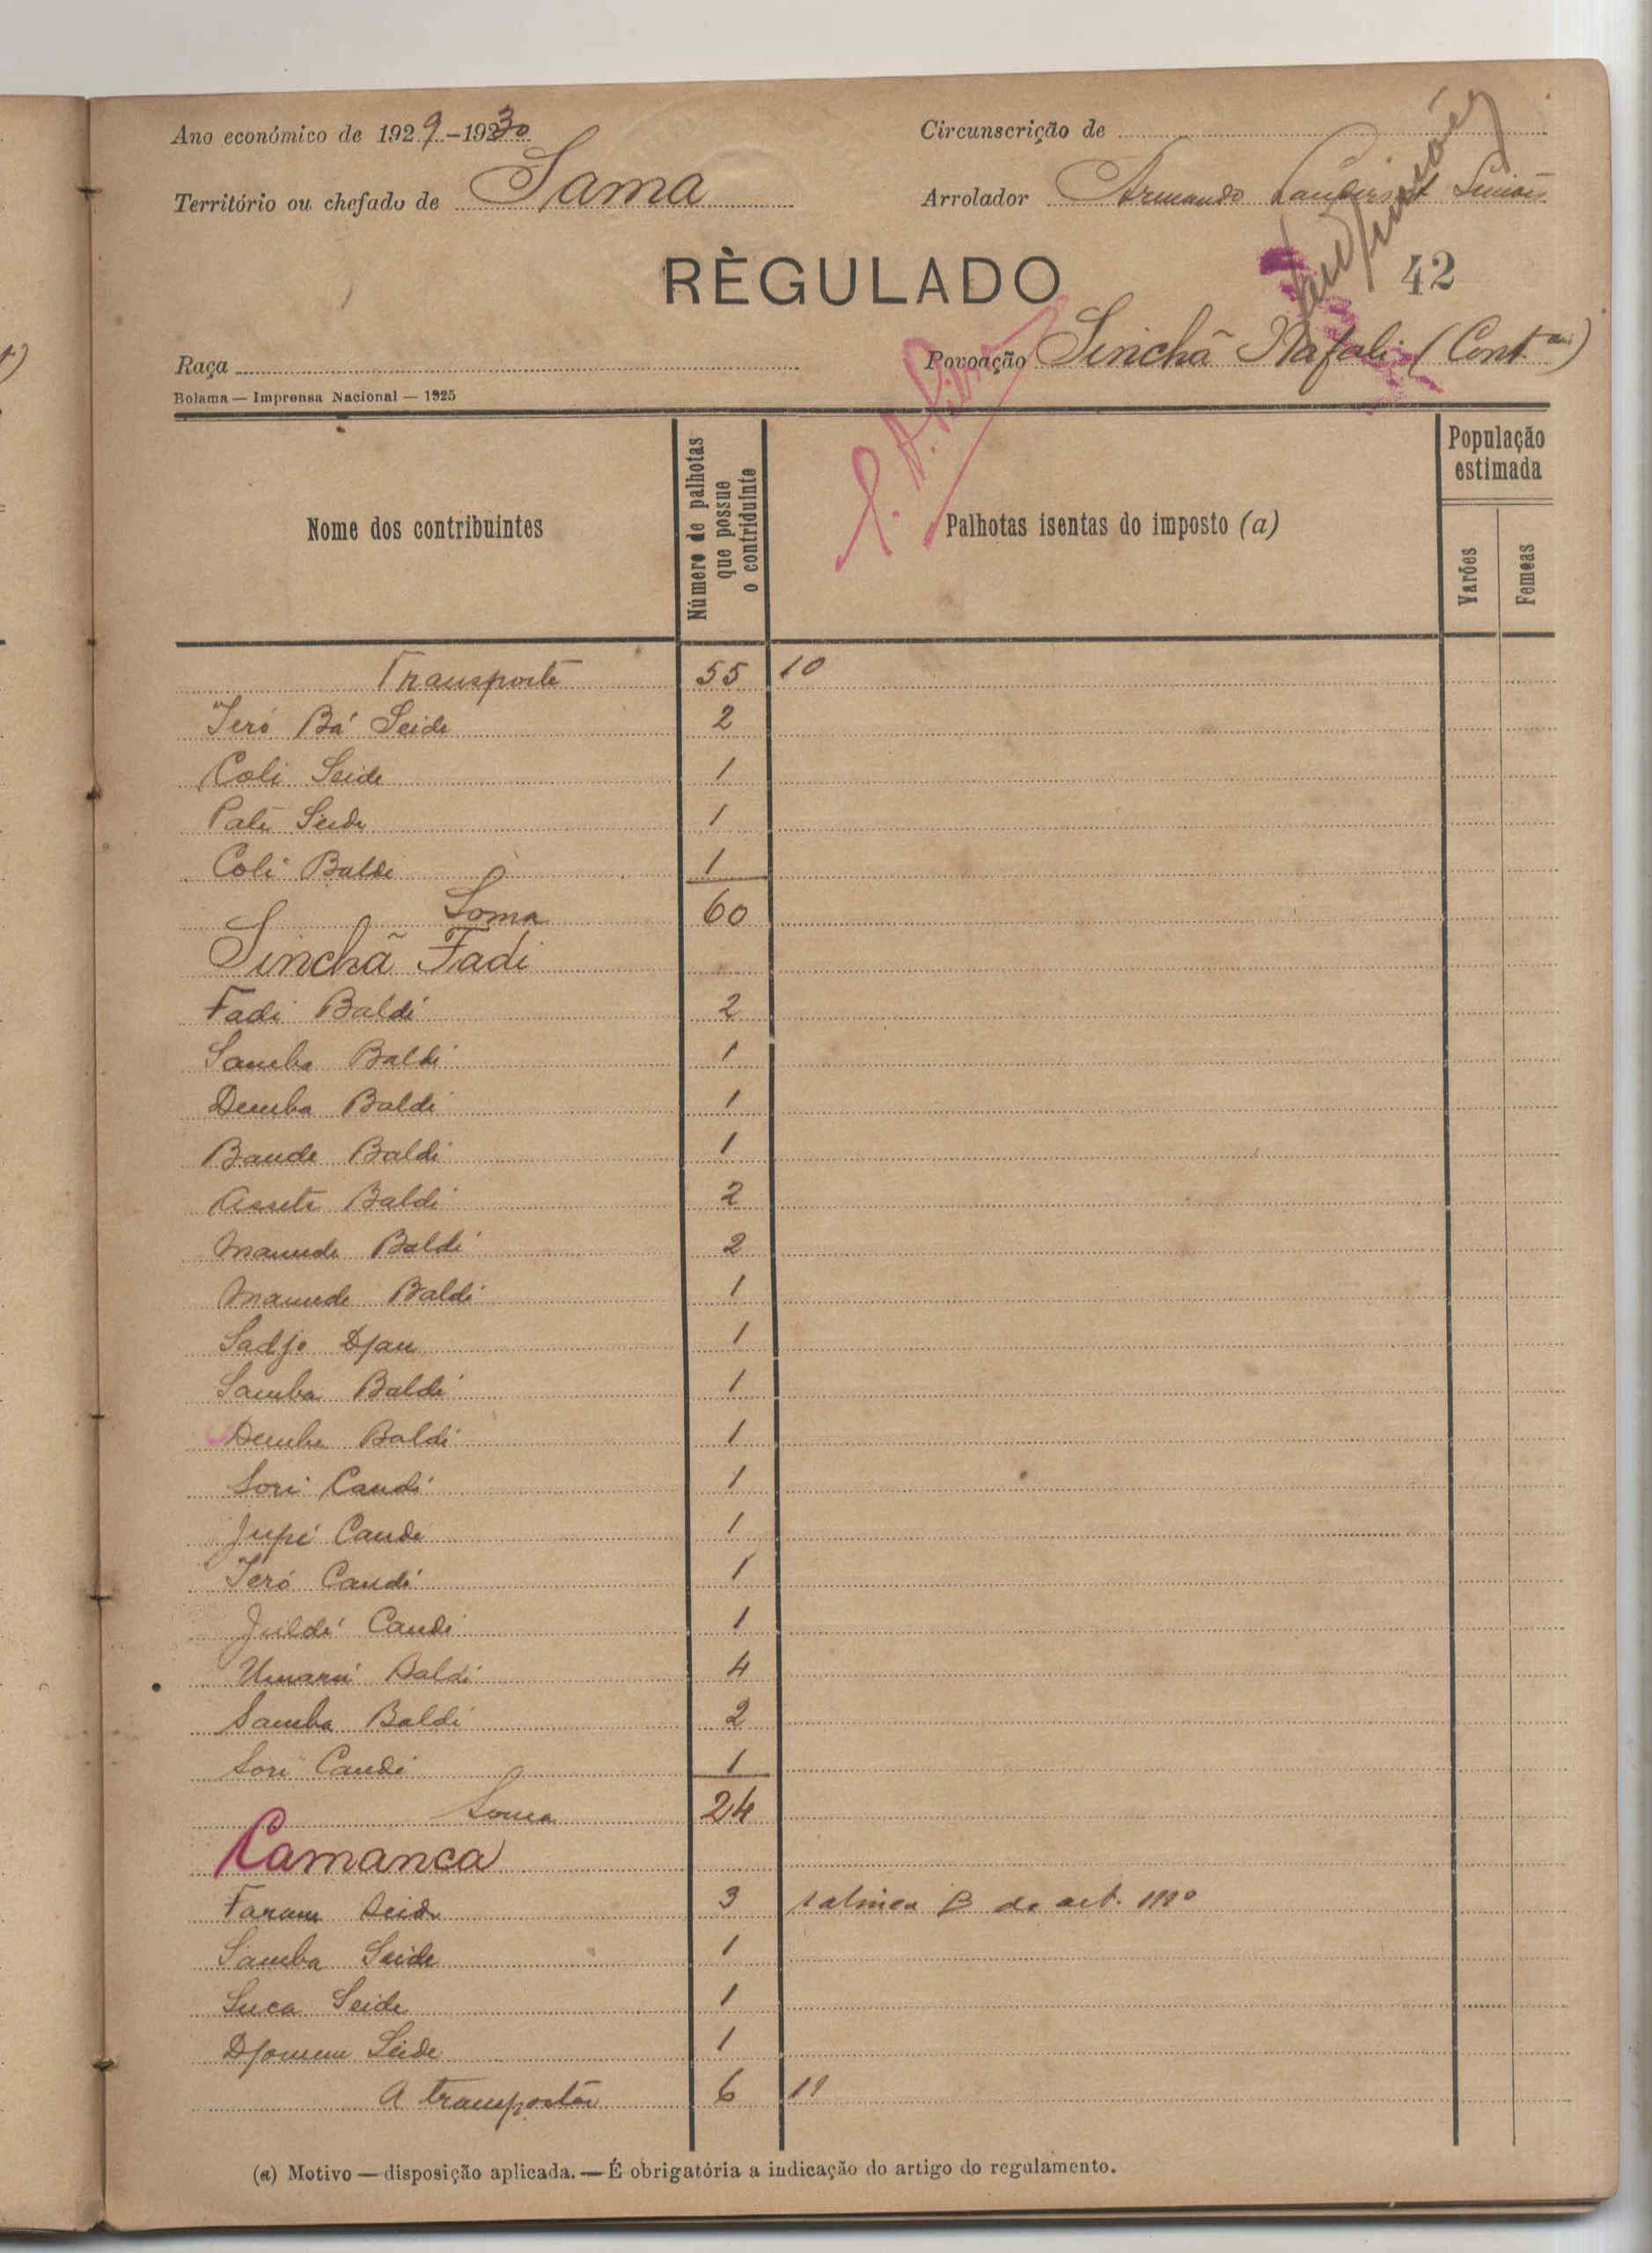 Ano económico de 1929-1930
Circunscrição de
Território ou chefado de Sama
Arrolador Armando
RÈGULADO
42
Raça
Povoação Sinchã Nafali (Cont.)
Bolama — Imprensa Nacional — 1925
Nome dos contribuintes
Número de palhotas
que possue
o contriduinte
Palhotas isentas do imposto (a)
População
estimada
Varões
Femeas
Transporte 55 10
Feró Bá Seide 2
Coli Seide 1
Paté Seide 1
Coli Baldé 1
Soma 60
Sinchã Fadi
Fadi Baldé 2
Samba Baldé 1
Demba Baldé 1
Bande Baldé 1
Baldé 2
Mamude Baldé 2
Mamude Baldé 1
Sadjo Djau 1
Samba Baldé 1
Demba Baldé 1
Sori Candé 1
Candé 1
Feró Candé 1
Juldé Candé 1
Umarú Baldé 4
Samba Baldé 2
Sori Candé 1
Soma 24
Camanca
Seide 3 B do art.
Samba Seide 1
Suca Seide 1
Seide 1
A transportar 6 11
(a) Motivo — disposição aplicada. — É obrigatória a indicação do artigo do regulamento.